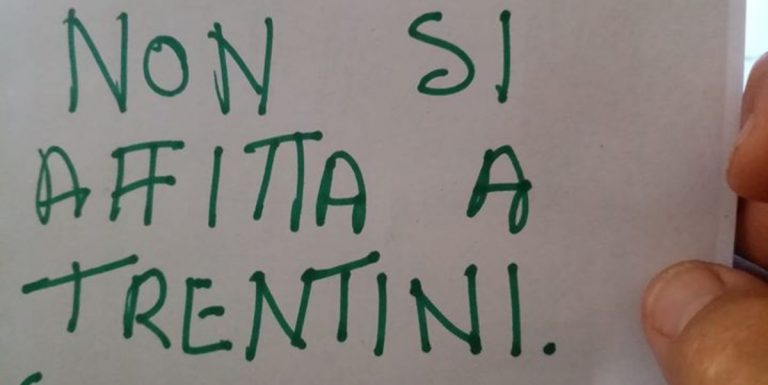 NON SI
AFFITTA A
TRENTINI.